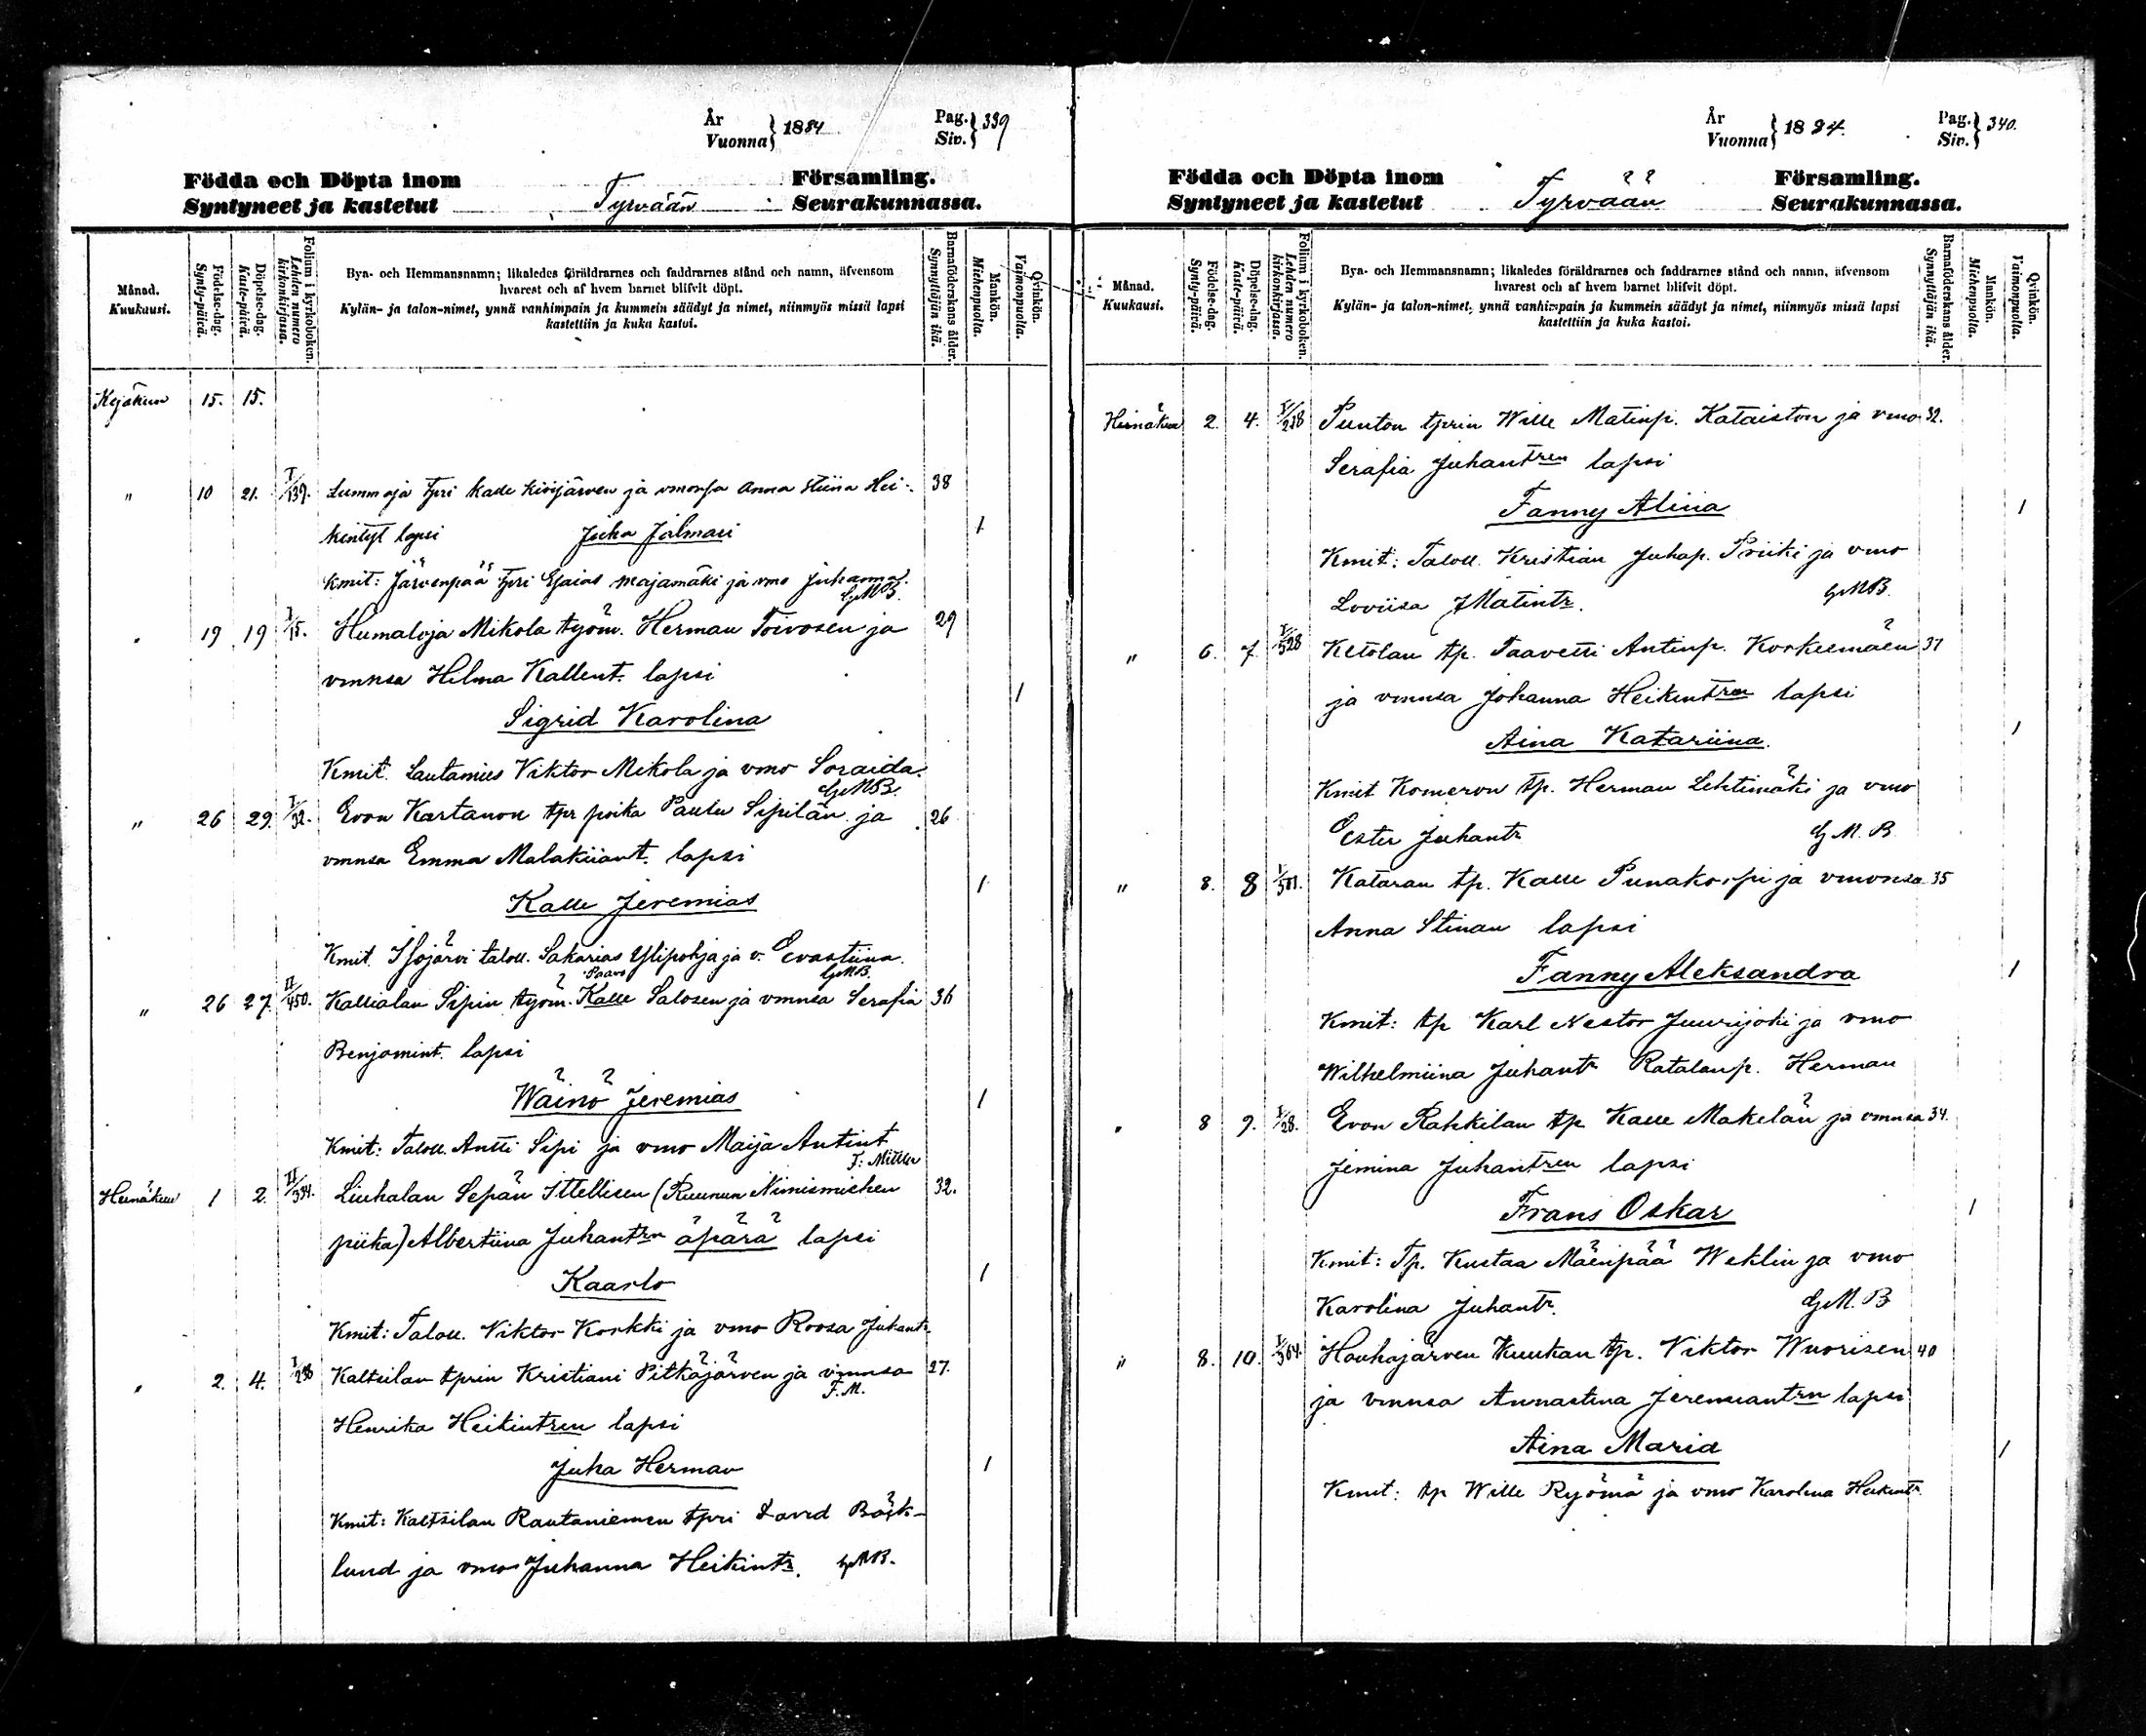 År
Vuonna } 1884
Pag.
Siv. } 339
Födda och Döpta inom Församling.
Syntyneet ja kastetut Tyrvään Seurakunnassa.
Månad.
Kuukausi.
Födelse-dag.
Synty-päivä.
Döpelse-dag.
Kaste-päivä.
Folium i kyrkoboken.
Lehden numero kirkonkirjassa.
Bya- och Hemmansnamn; likaledes föräldrarnes och faddrarnes stånd och namn, äfvensom
hvarest och af hvem barnet blifvit döpt.
Kylän- ja talon-nimet, ynnä vanhimpain ja kummein säädyt ja nimet, niinmyös missä lapsi
kastettiin ja kuka kastoi.
Barnaföderskans ålder.
Synnyttäjän ikä.
Mankön.
Miehenpuolta.
Qvinkön.
Vaimonpuolta.
Kesäkuu 15. 15.
" 10 21. I/139. Lummaja tpri Kalle Kivijärven ja vmonsa Anna Stiina Hei- 38
kintyt lapsi Juha Jalmari 1
Kmit: Järvenpää tpri Esaias Majamäki ja vmo Juhanna.
G.M.B.
" 19 19 I/15. Humaloja Mikola työm. Herman Toivosen ja 29
vmnsa Hilma Kallent. lapsi 1
Sigrid Karolina
Kmit. Lautamies Viktor Mikola ja vmo Soraida.
G.M.B.
" 26 29. I/32. Evon Kartanon tpr poika Paulu Sipilän ja 26
vmnsa Emma Malakiiant. lapsi
Kalle Jeremias 1
Kmit. Isojärvi taloll. Sakarias Ylipohja ja v. Evastiina.
Paavo G.M.B.
" 26 27. II/450. Kallialan Sipin työm. Kalle Salosen ja vmnsa Serafia 36
Benjamint. lapsi
Wäinö Jeremias 1
Kmit: Taloll. Antti Sipi ja vmo Maija Antint
F: Mittler
Heinäkuu 1 2. II/334. Liuhalan Sepän Itellisen (Ruunun Nimismiehen 32.
piika) Albertiina Juhantrn äpärä lapsi
Kaarlo 1
Kmit: Taloll. Viktor Korkki ja vmo Roosa Juhantr.
" 2. 4. I/238 Kaltsilan tprin Kristiani Pitkäjärven ja vmnsa 27.
F.M.
Henrika Heikintren lapsi
Juha Herman 1
Kmit: Kaltsilan Rautaniemen tpri David Bäck-
lund ja vmo Juhanna Heikintr. G.M.B.
År
Vuonna } 1884.
Pag.
Siv. } 340.
Födda och Döpta inom Församling.
Syntyneet ja kastetut Tyrvään Seurakunnassa.
Månad.
Kuukausi.
Födelse-dag.
Synty-päivä.
Döpelse-dag.
Kaste-päivä.
Folium i kyrkoboken.
Lehden numero kirkonkirjassa.
Bya- och Hemmansnamn; likaledes föräldrarnes och faddrarnes stånd och namn, äfvensom
hvarest och af hvem barnet blifvit döpt.
Kylän- ja talon-nimet, ynnä vanhimpain ja kummein säädyt ja nimet, niinmyös missä lapsi
kastettiin ja kuka kastoi.
Barnaföderskans ålder.
Synnyttäjän ikä.
Mankön.
Miehenpuolta.
Qvinkön.
Vaimonpuolta.
Heinäkuu 2. 4. I/238 Punton tprin Wille Matinp. Kataiston ja vmo 32.
Serafia Juhantren lapsi
Fanny Aliina 1
Kmit: Taloll. Kristian Juhap. Priiki ja vmo
Loviisa Matintr. G.M.B.
" 6. 7. I/528 Ketolan tp. Taavetti Antinp. Korkeemäen 37
ja vmnsa Johanna Heikintren lapsi
Aina Katariina. 1
Kmit Komeron tp. Herman Lehtimäki ja vmo
Ester Juhantr G.M.B.
" 8. 8 I/501. Kataran tp. Kalle Punakorpi ja vmonsa 35
Anna Stinan lapsi
Fanny Aleksandra 1
Kmit: tp Karl Nestor Juurijoki ja vmo
Wilhelmiina Juhantr Ratalanp. Herman
" 8 9. I/28. Evon Rahkilan tp Kalle Makelän ja vmnsa 34.
Jemina Juhantren lapsi
Frans Oskar 1
Kmit: Tp. Kustaa Mäenpää Weklin ja vmo
Karolina Juhantr. G.M.B
" 8. 10. I/564. Houhajärven Kuukan tp. Viktor Wuorisen 40
ja vmnsa Annastina Jeremiantrn lapsi
Aina Maria 1
Kmit: tp Wille Ryömä ja vmo Karolina Heikintr.